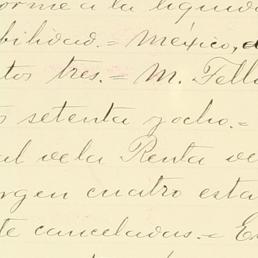 orme a la liquid
bilidad.= México, d
tos tres.= M. Tello
s setenta y ocho.=
al de la Renta de
rgen cuatro esta
te canceladas.= E